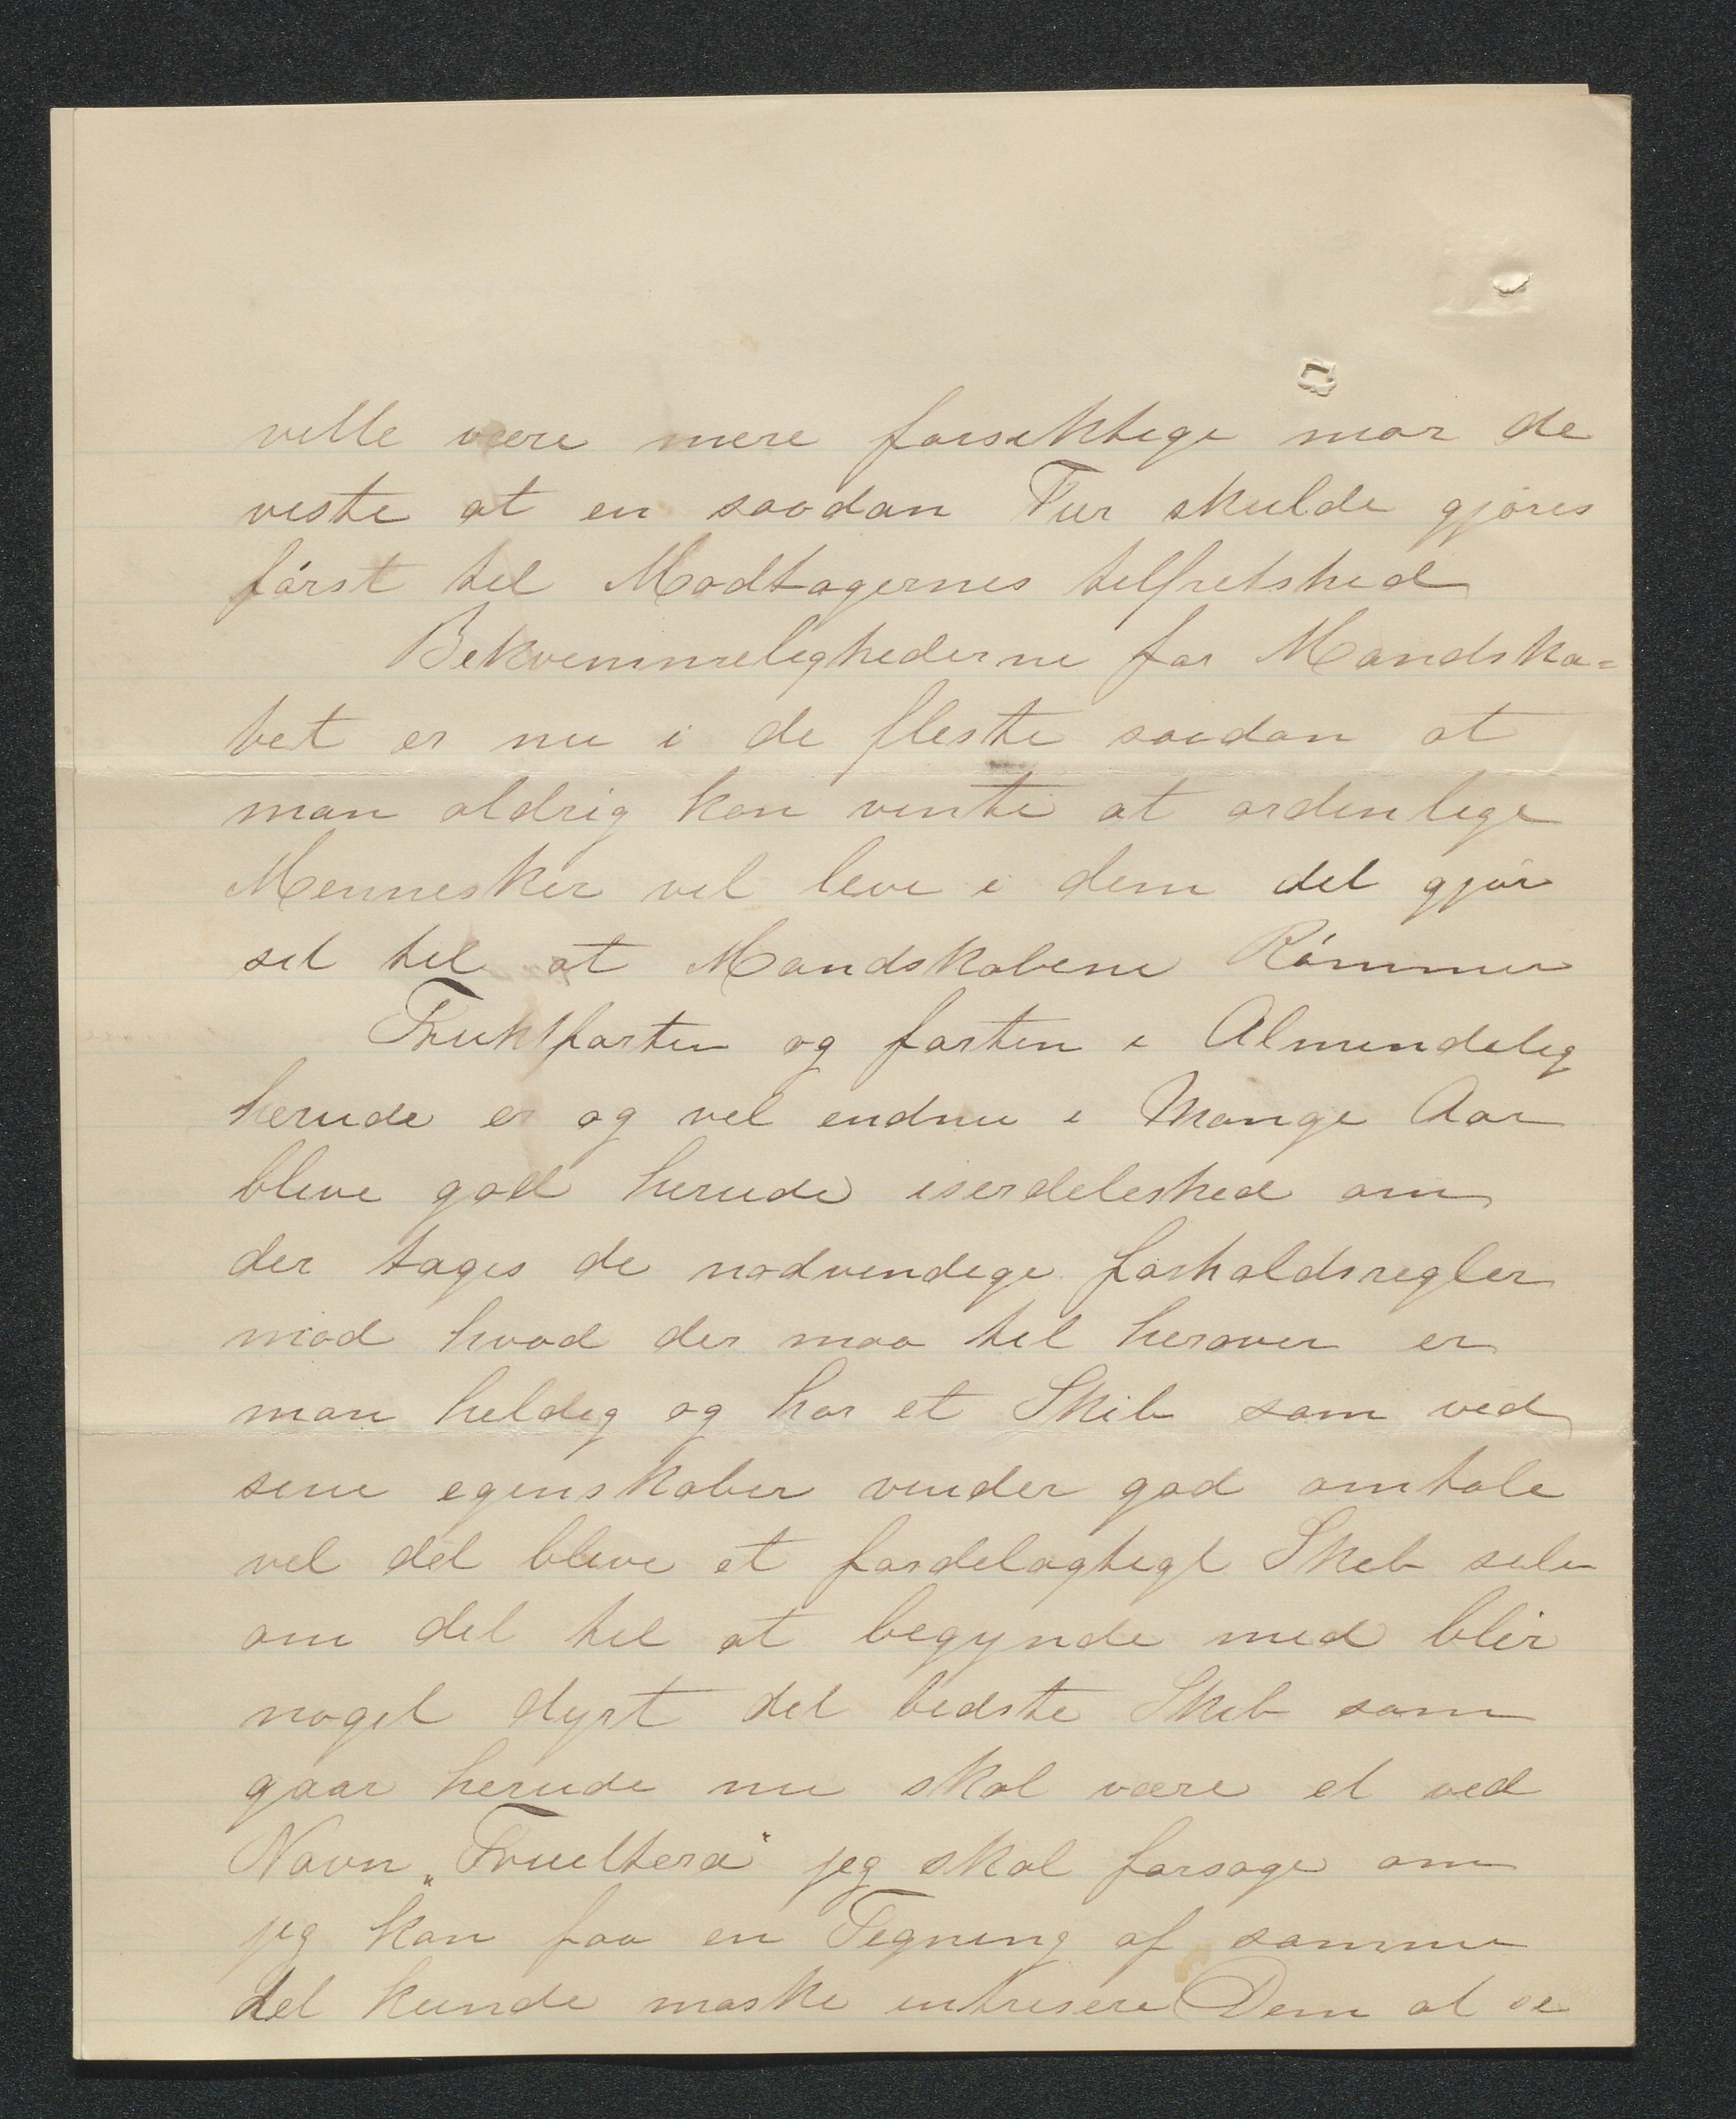 ville være mere forsiktige naar de
viste at en saadan Tur skulde gjøres
først til Modtagernes tilfretshed
Bekvemmelighederne for Mandska=
bet er nu i de fleste saadan at
man aldrig kan vente at ordenlige
Mennesker vil leve i dem det gjør
sit til at Mandskabene Rømmer
Fruktfarten og farten i Almindelig
herude er og vil endnu i Mange Aar
blive god herude iserdeleshed om
der tages de nødvendige forholdsregler
mod hvad der maa til herover er
man heldig og har et Skib som ved
sine egenskaber vinder god omtale
vil det blive et fordelagtigt Skib selv
om det til at begynde med blir
noget dyrt det bedste Skib som
gaar herude nu skal være et ved
Navn „Fruettera" jeg skal forsøge om
jeg kan faa en Tegning af samme
det kunde maske intresere Dem at se